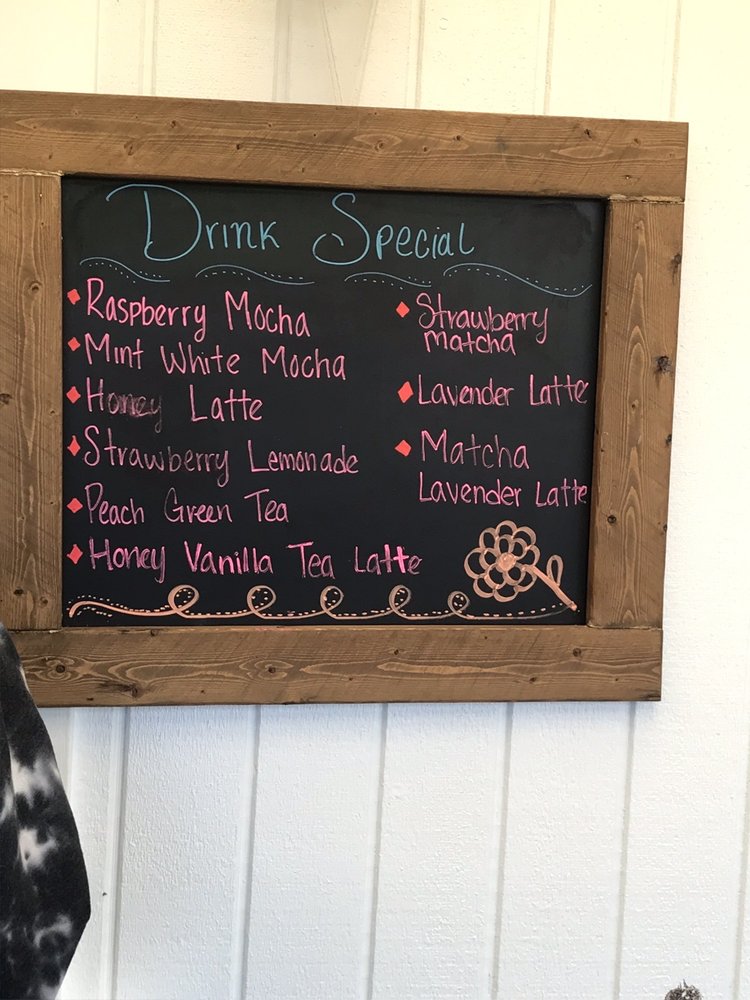 Drink Special
Raspberry Mocha
Mint White Mocha
Honey Latte
Strawberry Lemonade
Peach Green Tea
Honey Vanilla Tea Latte
Strawberry
matcha
Lavender Latte
Matcha
Lavender Latte